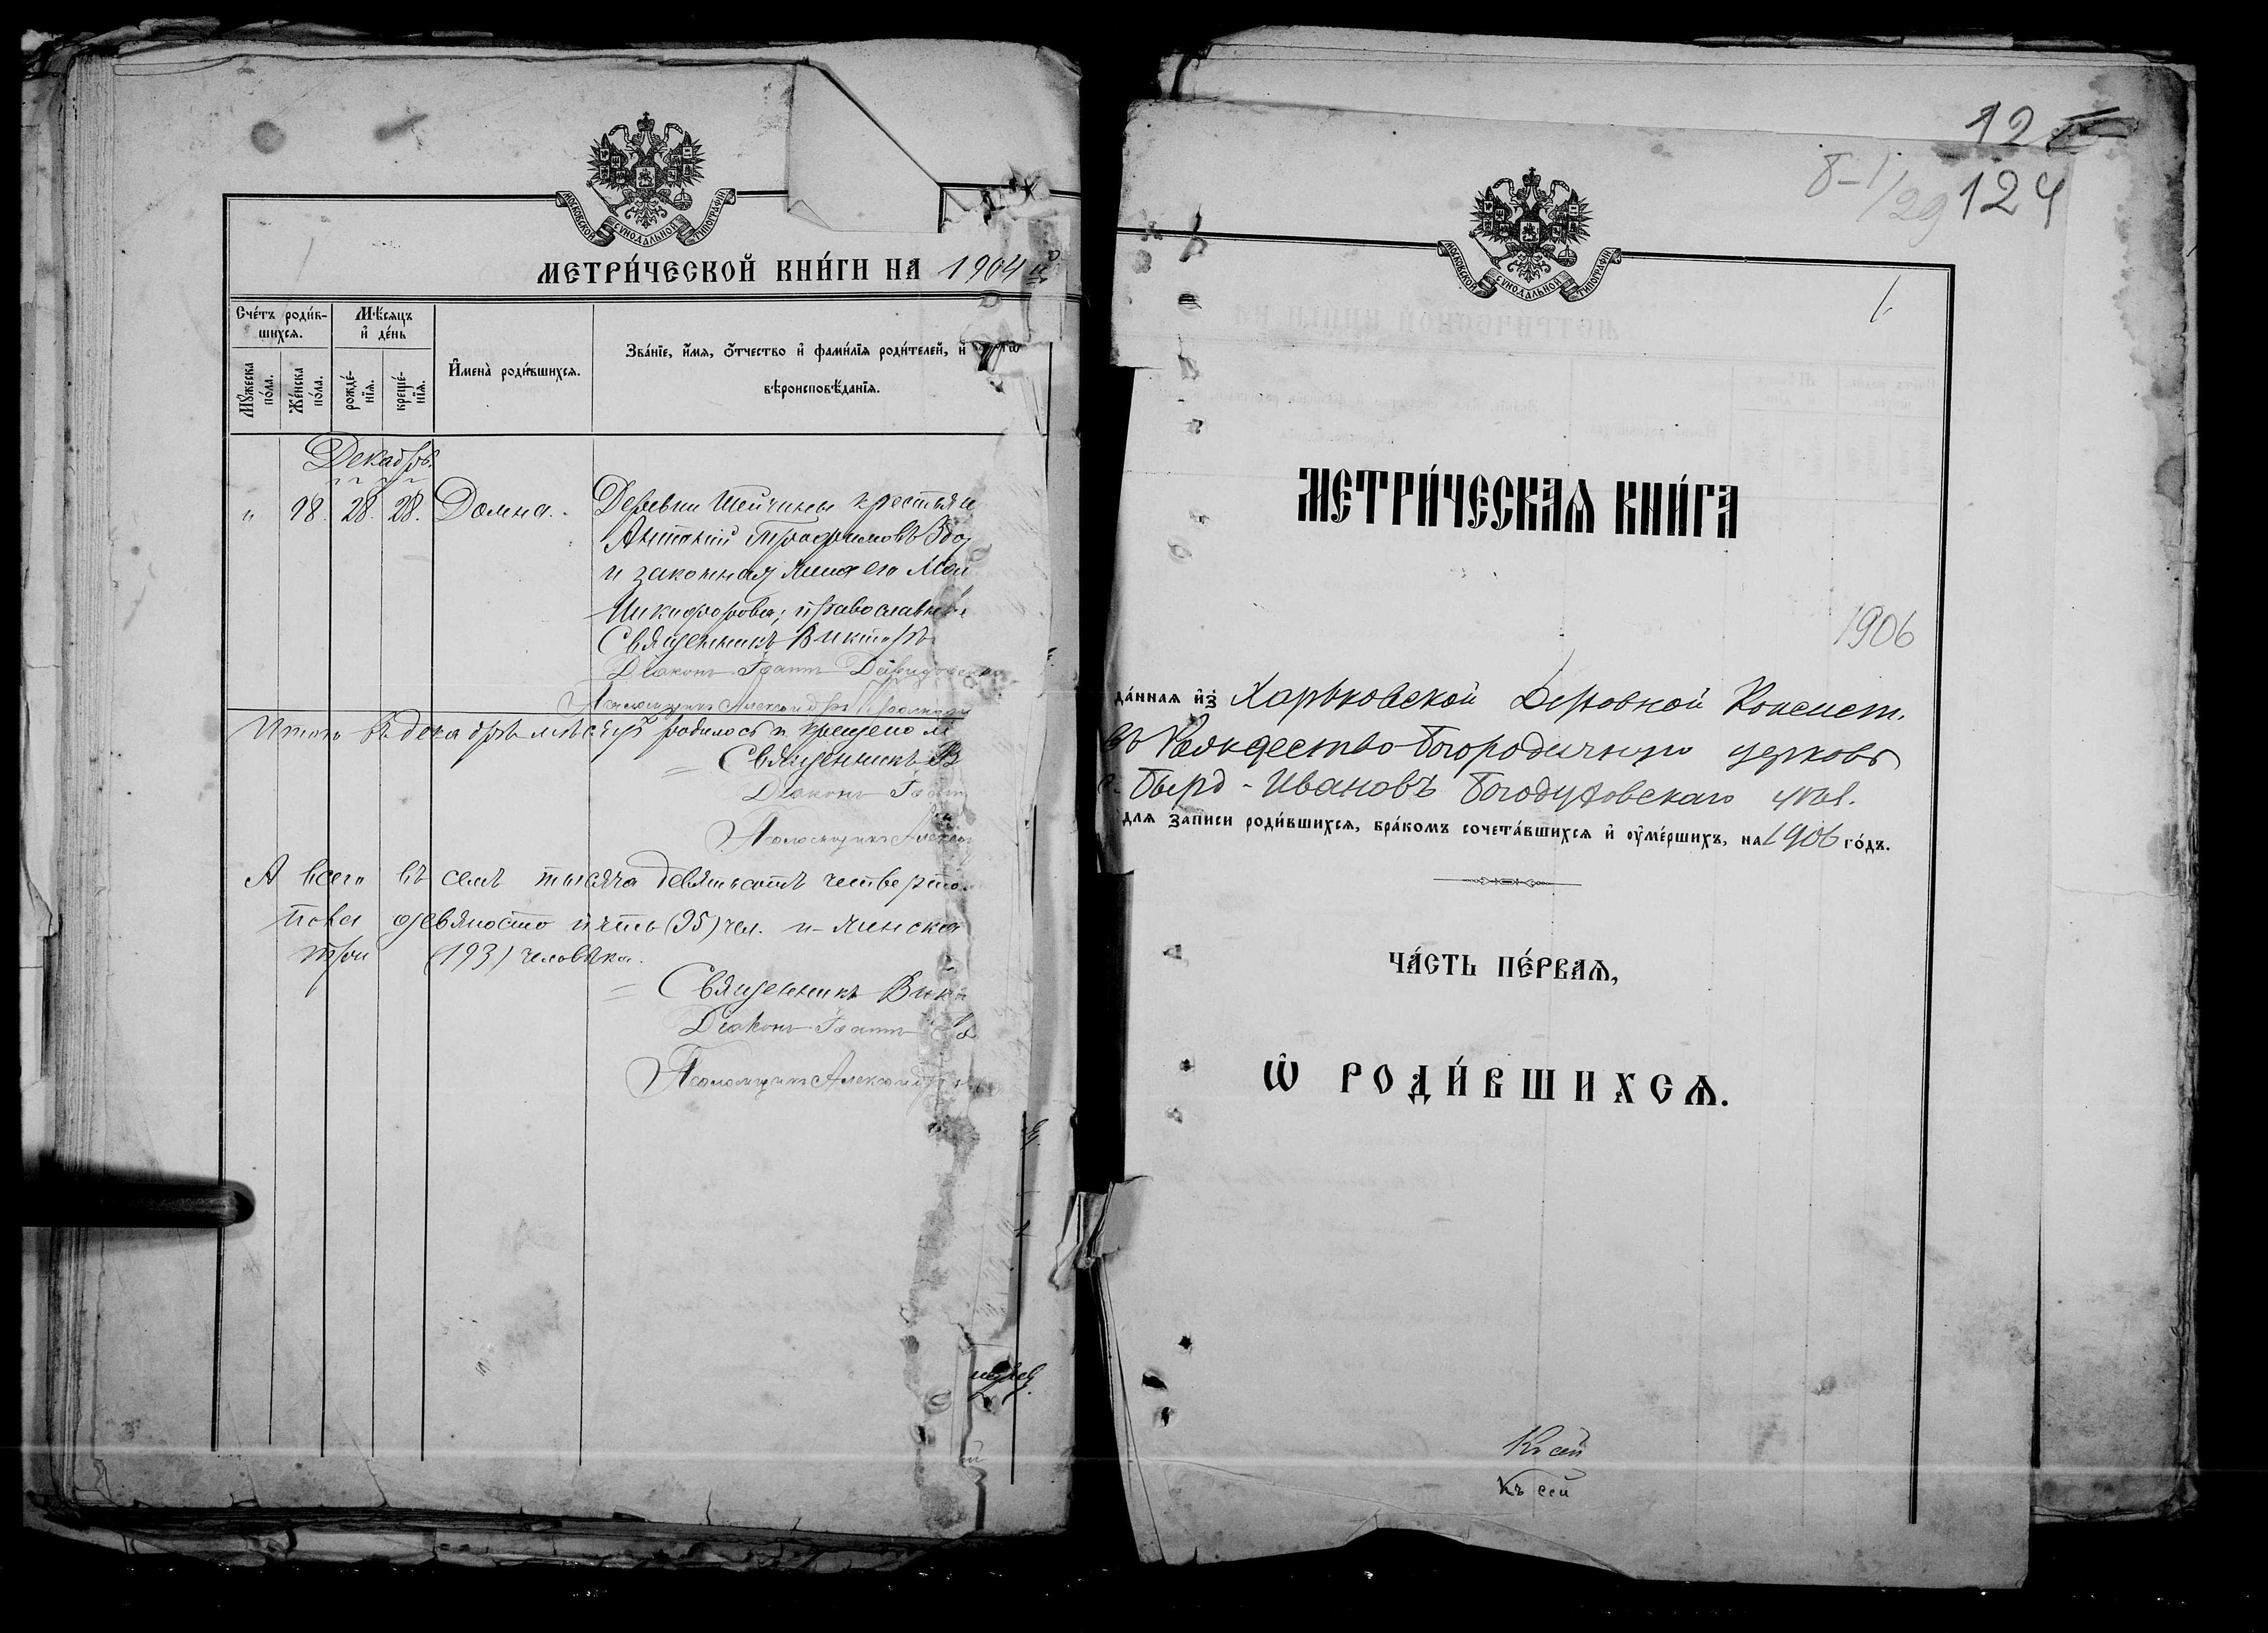 МОСКОВСКОЙ СУНОДАЛЬНОЙ ТИПОГРАФІИ
МЕТРИ́ЧЕСКОЙ КНИ́ГИ НА 1904 й
Сче́тъ роди́в-
шихся.
Мѣ́сяцъ
и де́нь
Имена̀ роди́вшихся.
Зва́нїе, и́мя, о́тчество и фами́лїя роди́телей, и
вѣроисповѣ́данїя.
Му́жеска
по́ла.
Же́нска
по́ла.
рожде́-
нїя.
креще́-
нїя.
Декабрь.
" 98. 28. 28. Домна. Деревни Шейчины крестьян
Антоній Трофимовъ
и законная жена его
Никифорова; православн
Священникъ Викторъ
Діаконъ Іоаннъ
Псаломщикъ Александръ
Итого въ декабрѣ мѣсяцѣ родилось и крещено м
Священникъ В
Діаконъ Іоанн
Псаломщикъ Алекса
А всего въ семъ тысяча девятьсотъ четверто
пола девяносто пять (95) чел. и женска
три (193) человѣка.
Священникъ Вик
Діаконъ Іоаннъ
Псаломщикъ Александръ
12
8-1/29 124
МОСКОВСКОЙ СУНОДАЛЬНОЙ ТИПОГРАФІИ
1.
МЕТРИ́ЧЕСКАЯ КНИ́ГА
1906
да́нная из Харьковской Духовной Консист.
въ Рождество-Богородичную церковь
с. Бырд-Ивановъ Богодуховскаго уѣзд.
для за́писи роди́вшихся, бра́комъ сочета́вшихся и оуме́ршихъ, на 1906 го́дъ.
ЧА́СТЬ ПЕ́РВАЯ,
Ѡ РОДИ́ВШИХСЯ.
Къ сей
Къ сей